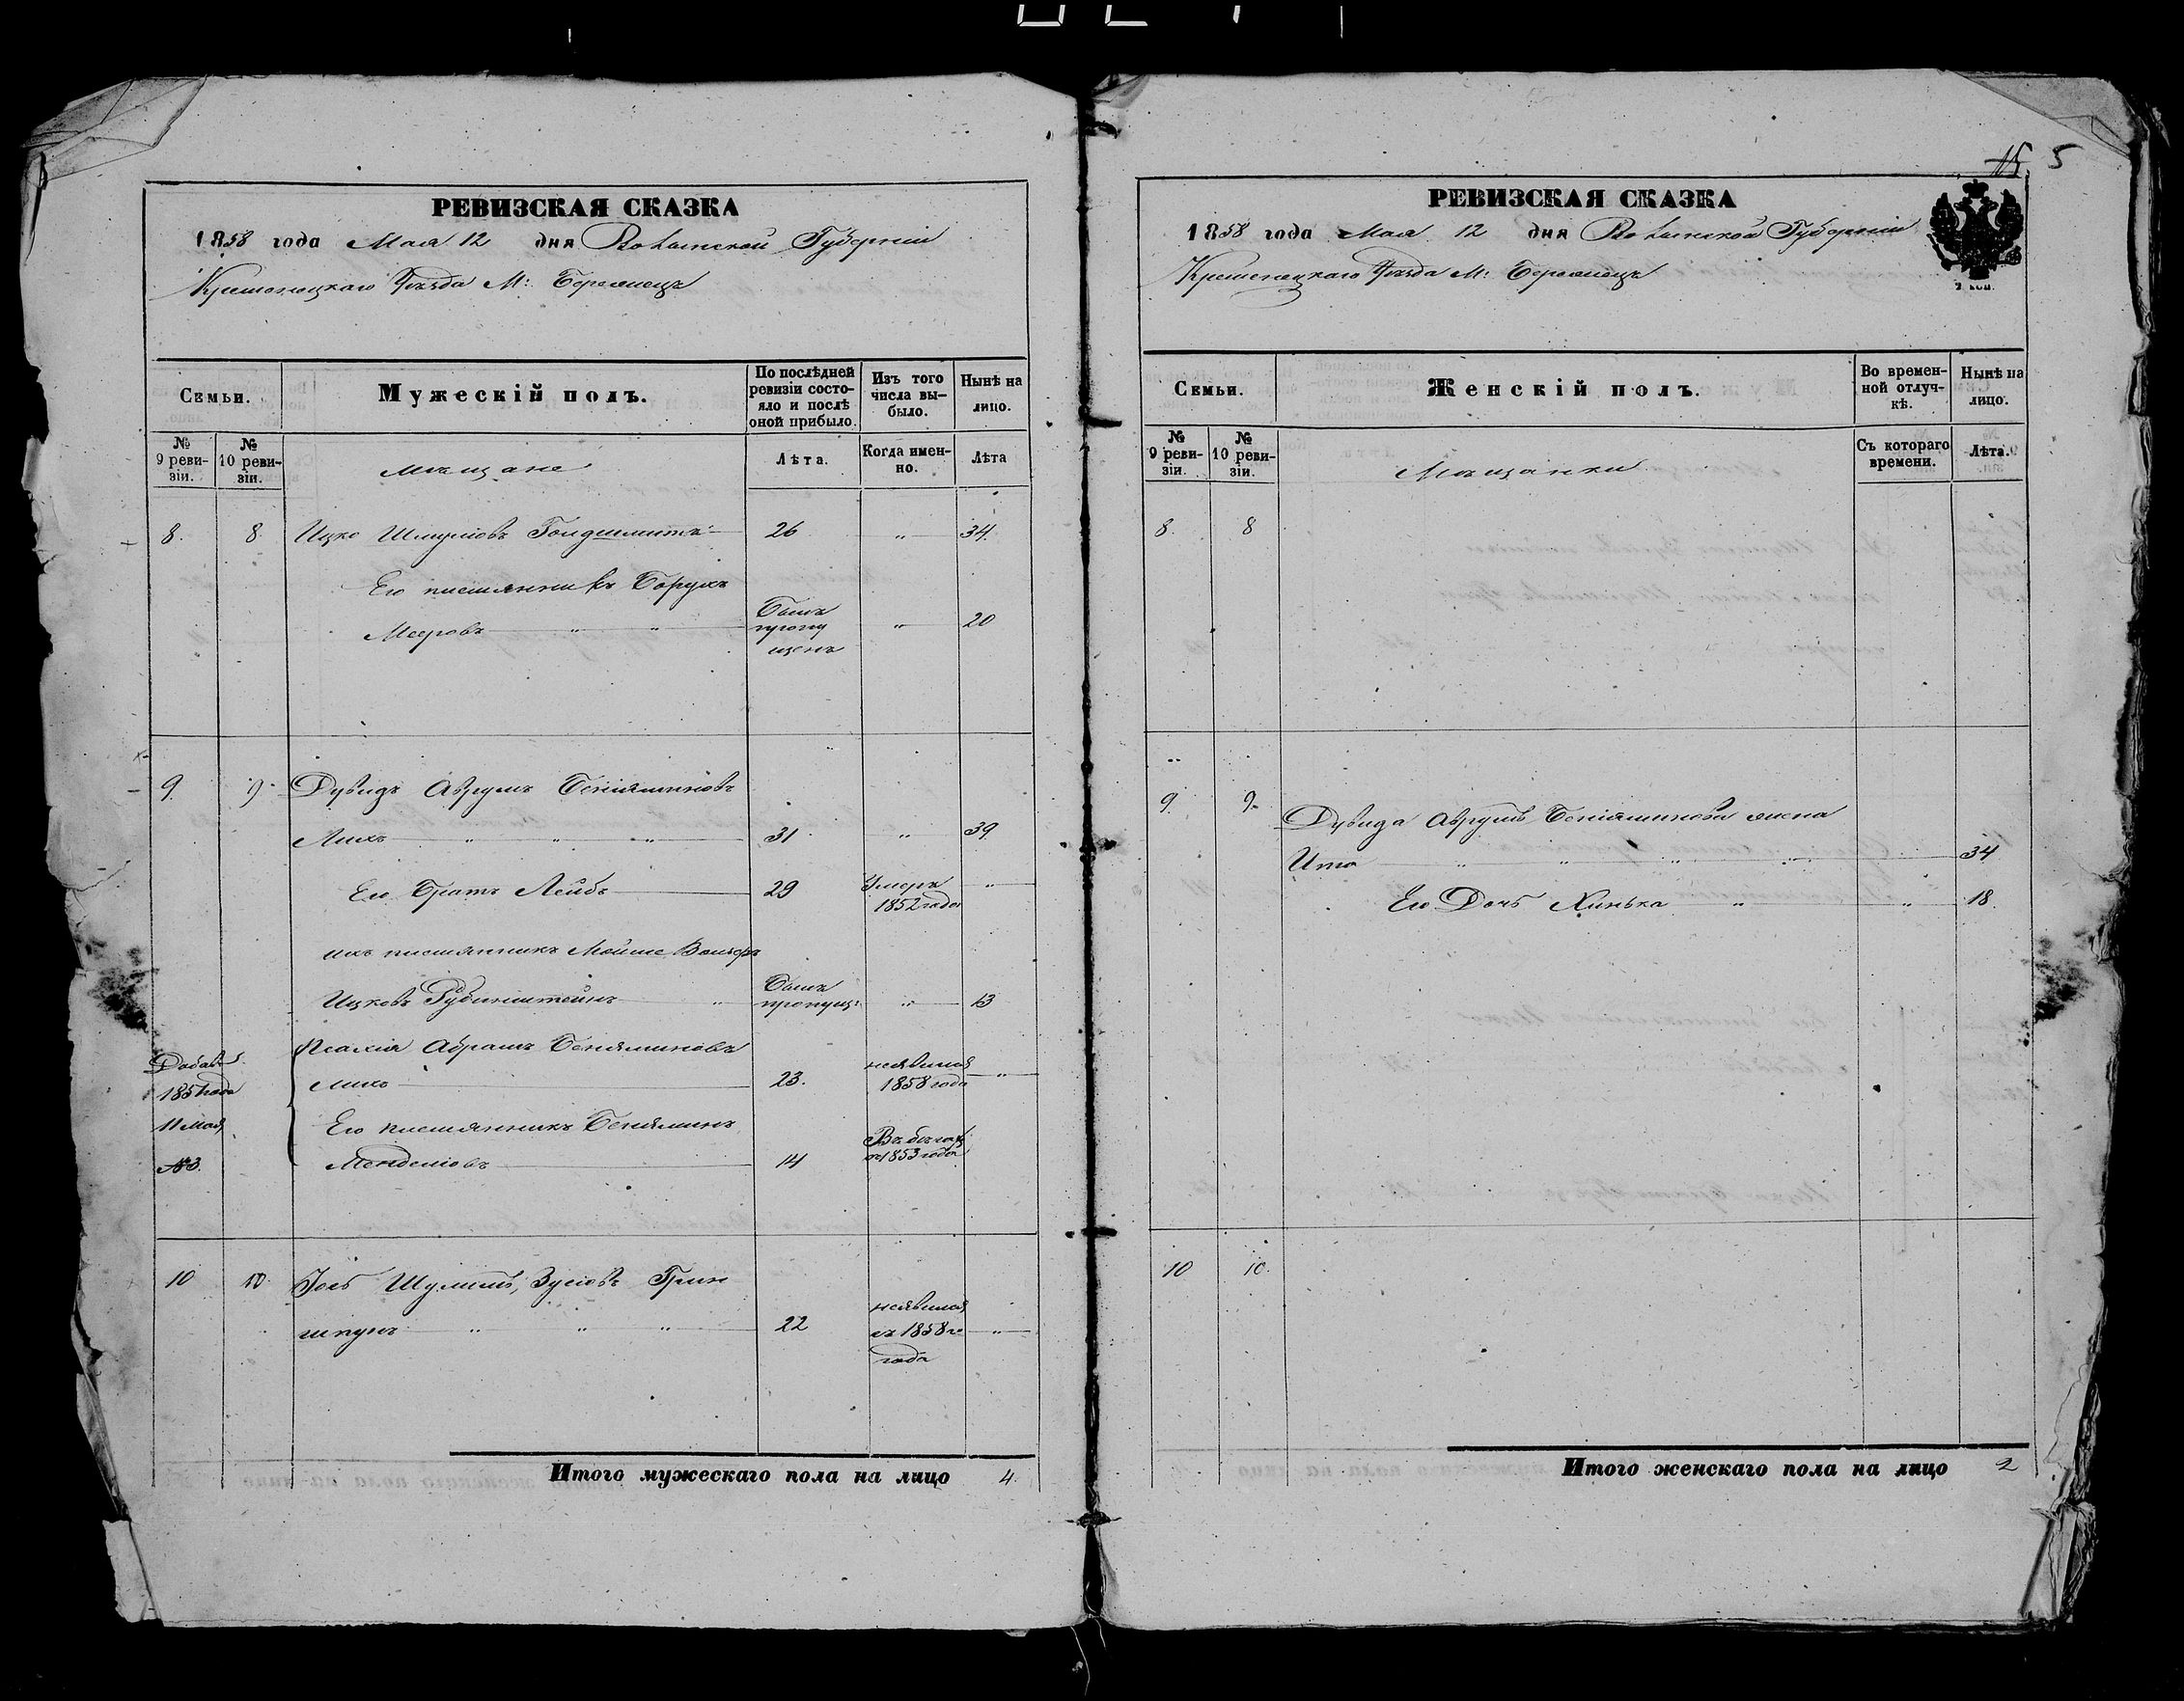 РЕВИЗСКАЯ СКАЗКА
1858 года Мая 12 дня Волынской Губерніи
Кременецкаго Уѣзда М: Бережецъ
Семьи.
Мужескій полъ.
По послѣдней ревизіи состояло и послѣ оной прибыло.
Изъ того числа выбыло.
Нынѣ на лицо.
№ 9 ревизіи.
№ 10 ревизіи.
Мѣщане
Лѣта.
Когда именно.
Лѣта
8. 8. Ицко Шмулiовъ Гольдшмитъ 26 " 34.
Его племянникъ Борухъ
Мееровъ " " Былъ пропущенъ " 20
9. 9. Дувидъ Аврумъ Бениаминовъ
Лихъ " " " 31 " 39
Его Братъ Лейбъ 29 Умеръ 1852 года "
ихъ племянникъ Мойше Вольфъ
Ицковъ Рубинштейнъ " Былъ пропущ: " 13
Добав. 1851 года 11 Мая №3.
Псахія Абрамъ Бениаминовъ
Лихъ 23. неявился 1858 года "
Его племянникъ Бениаминъ
Менделiовъ 14 Въ бѣгахъ съ 1853 года
10 10 Іось Шулимъ Зусіовъ Грин
шпунъ " " " 22 неявился съ 1858го года "
Итого мужескаго пола на лицо 4.
15. 5
РЕВИЗСКАЯ СКАЗКА
1858 года Мая 12 дня Волынской Губерніи
Кременецкаго Уѣзда М: Бережецъ
Семьи.
Женскій полъ.
Во временной отлучкѣ.
Нынѣ на лицо.
№ 9 ревизіи.
№ 10 ревизіи.
Мѣщанки
Съ котораго времени.
Лѣта.
8 8
9. 9.
Дувида Аврумъ Бениаминова жена
Ита " " " " 34
Его Дочь Хинька " " 18.
10 10.
Итого женскаго пола на лицо 2